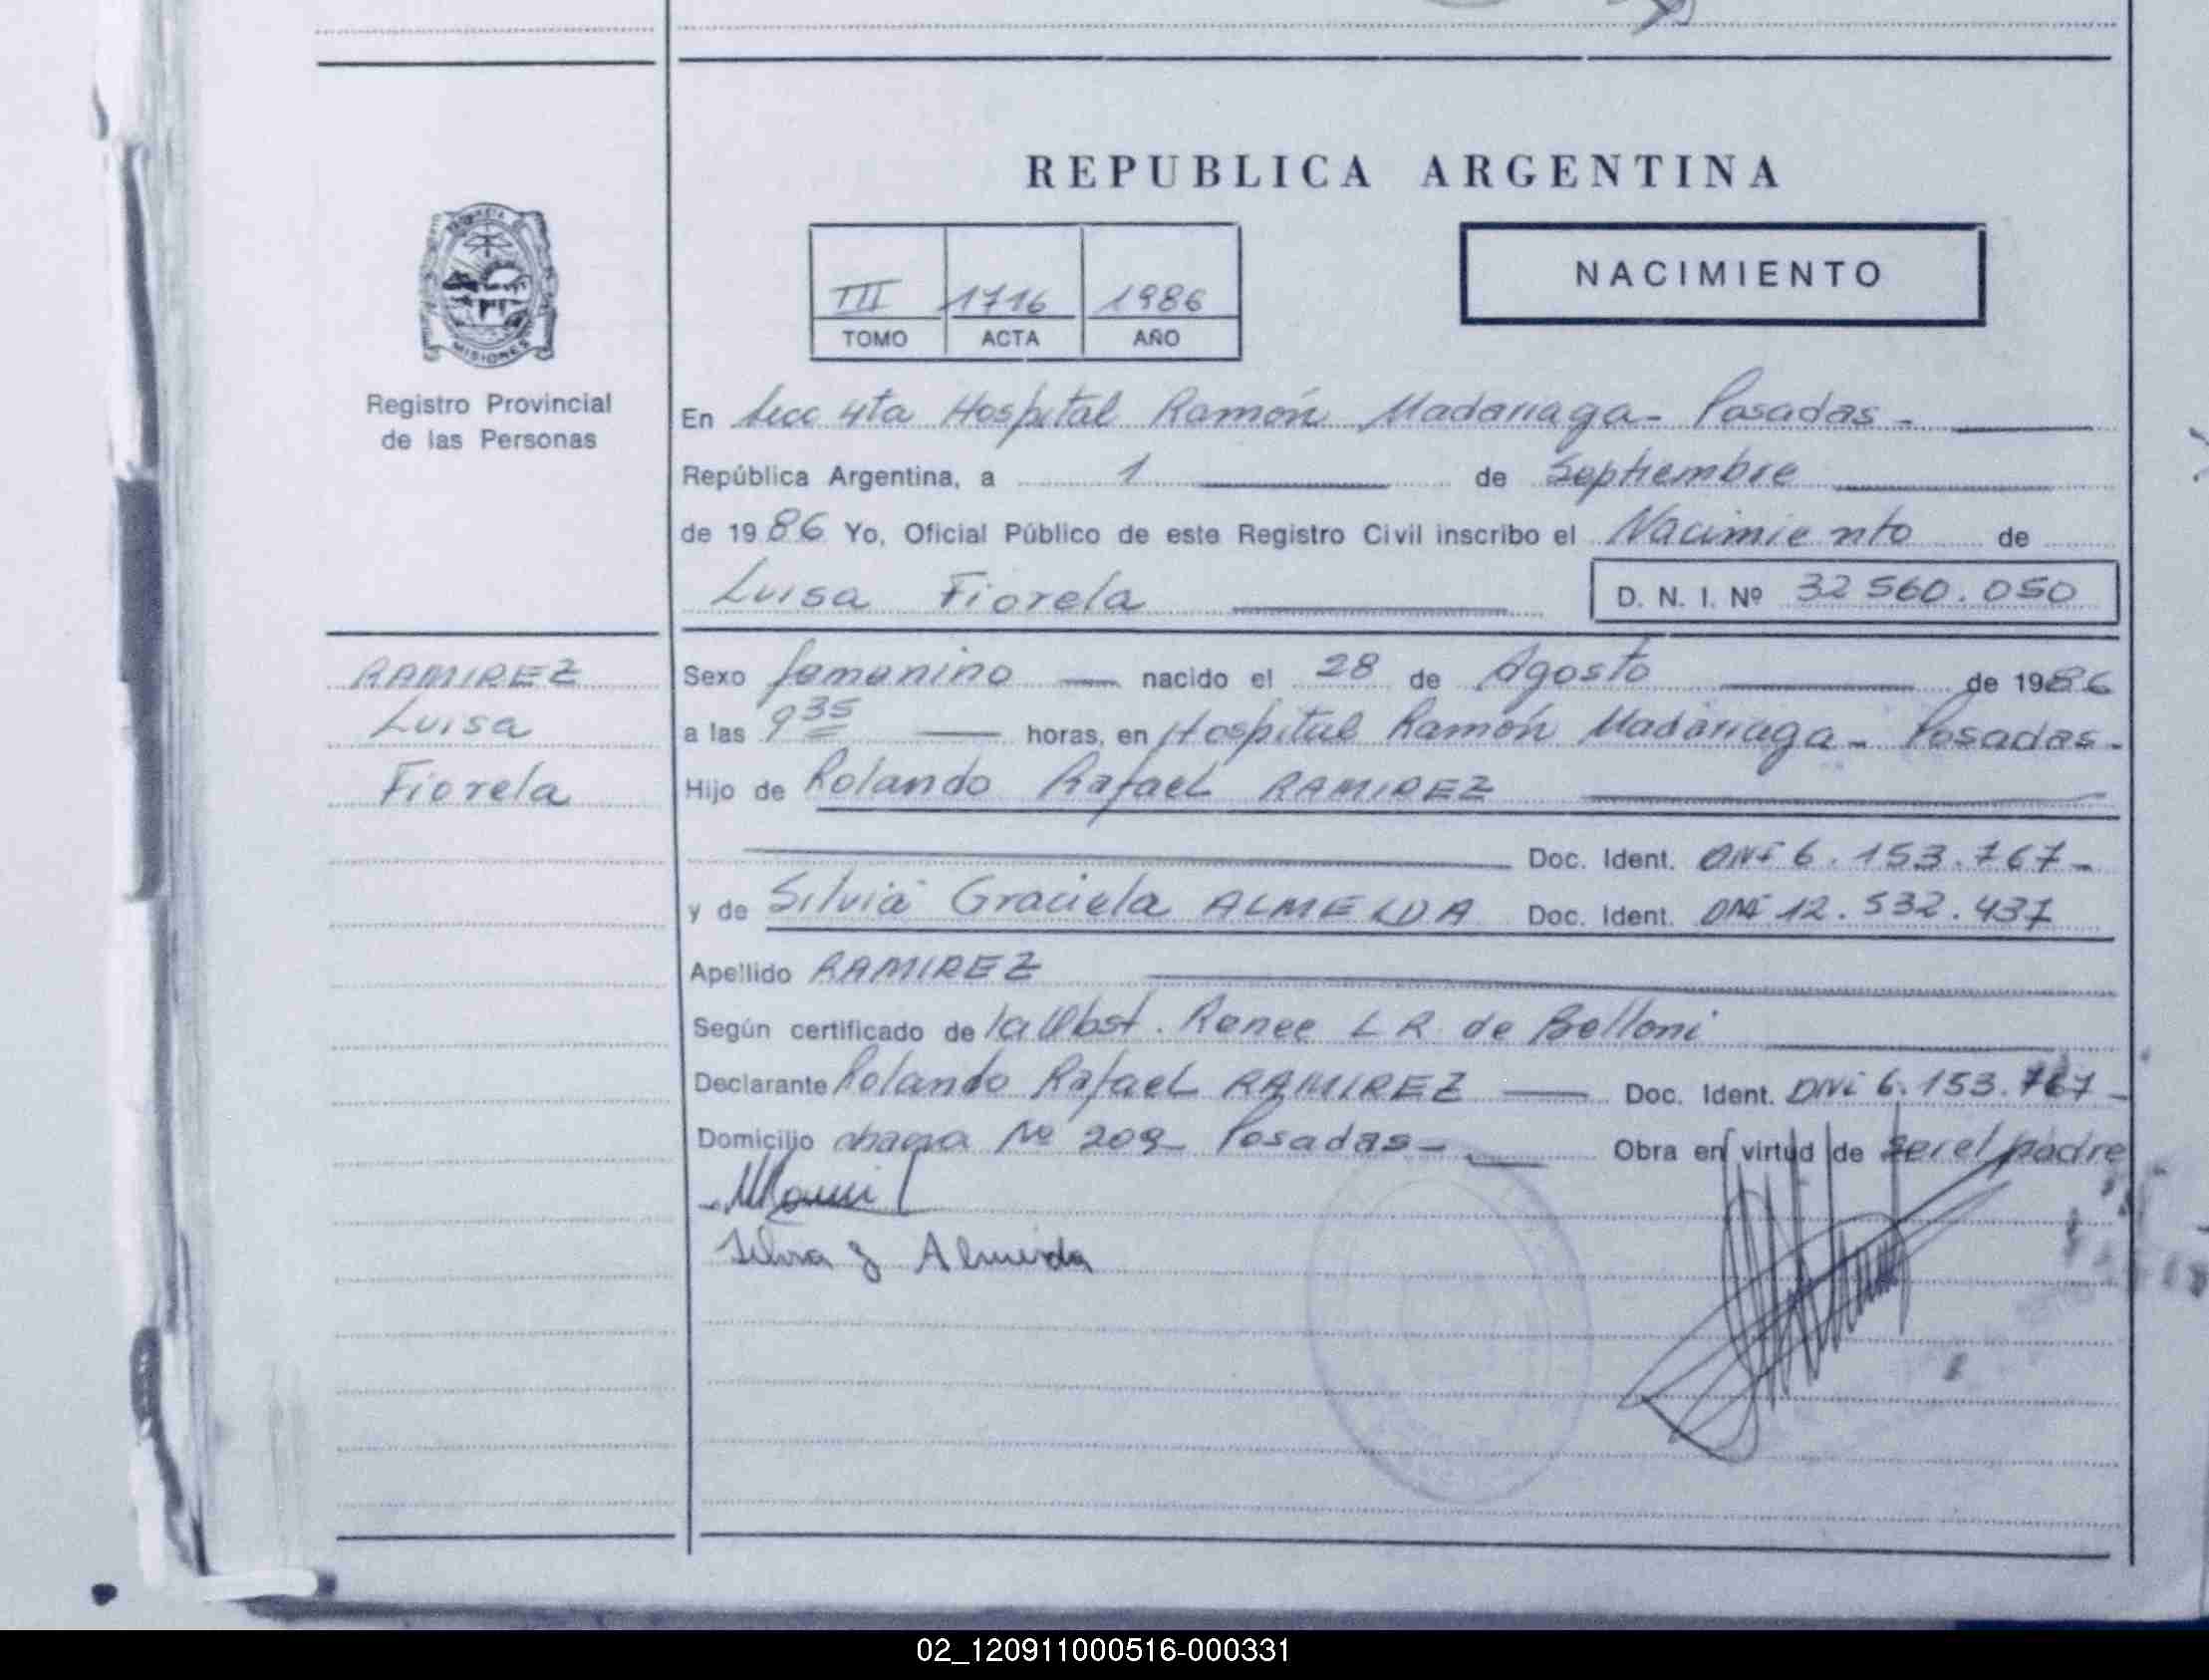 REPUBLICA ARGENTINA
III 1716 1986
TOMO ACTA AÑO
NACIMIENTO
MISIONES
Registro Provincial
de las Personas
En Secc 4ta Hospital Ramón Madariaga - Posadas -
República Argentina, a 1 de Septiembre
de 1986 Yo, Oficial Público de este Registro Civil inscribo el Nacimiento de
Luisa Fiorela D. N. I. Nº 32 560.050
RAMIREZ
Luisa
Fiorela
Sexo femenino nacido el 28 de Agosto de 1986
a las 9 35 horas, en Hospital Ramón Madariaga - Posadas -
Hijo de Rolando Rafael RAMIREZ
Doc. Ident. DNI 6.153.767 -
y de Silvia Graciela ALMEIDA Doc. Ident. DNI 12.532.437
Apellido RAMIREZ
Según certificado de la Obst. Renee L R de Belloni
Declarante Rolando Rafael RAMIREZ Doc. Ident. DNI 6.153.767 -
Domicilio chacra Nº 209 - Posadas - Obra en virtud de ser el padre
Silvia G Almeida
02_120911000516-000331